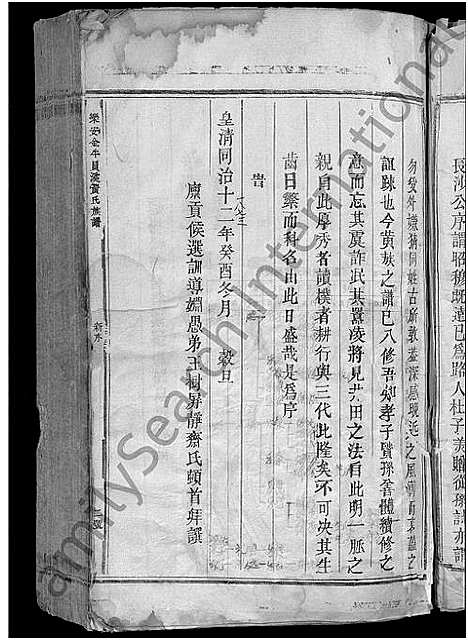 長沙公序謂昭穆既遠已爲路人杜子美贈從孫詩亦謂
勿受外嫌猜同姓古所敦蓋深慮親近之風
誼疎也今黄族之譜已八修吾知孝子賢孫善體續修之
意而忘其虞詐武其囂凌將見井田之法自此明一脈之
親自此厚秀者讀樸者耕行與三代此隆矣不可决其生
齒日繁而科名由此日盛哉是爲序
旹
皇清同治十二年癸酉冬月 穀旦
一八七三
廪貢候選訓導姻愚弟王樹屏靜齋氏頓首拜譔
樂安金牛員溪黄氏族譜
新序
FamilySearch International